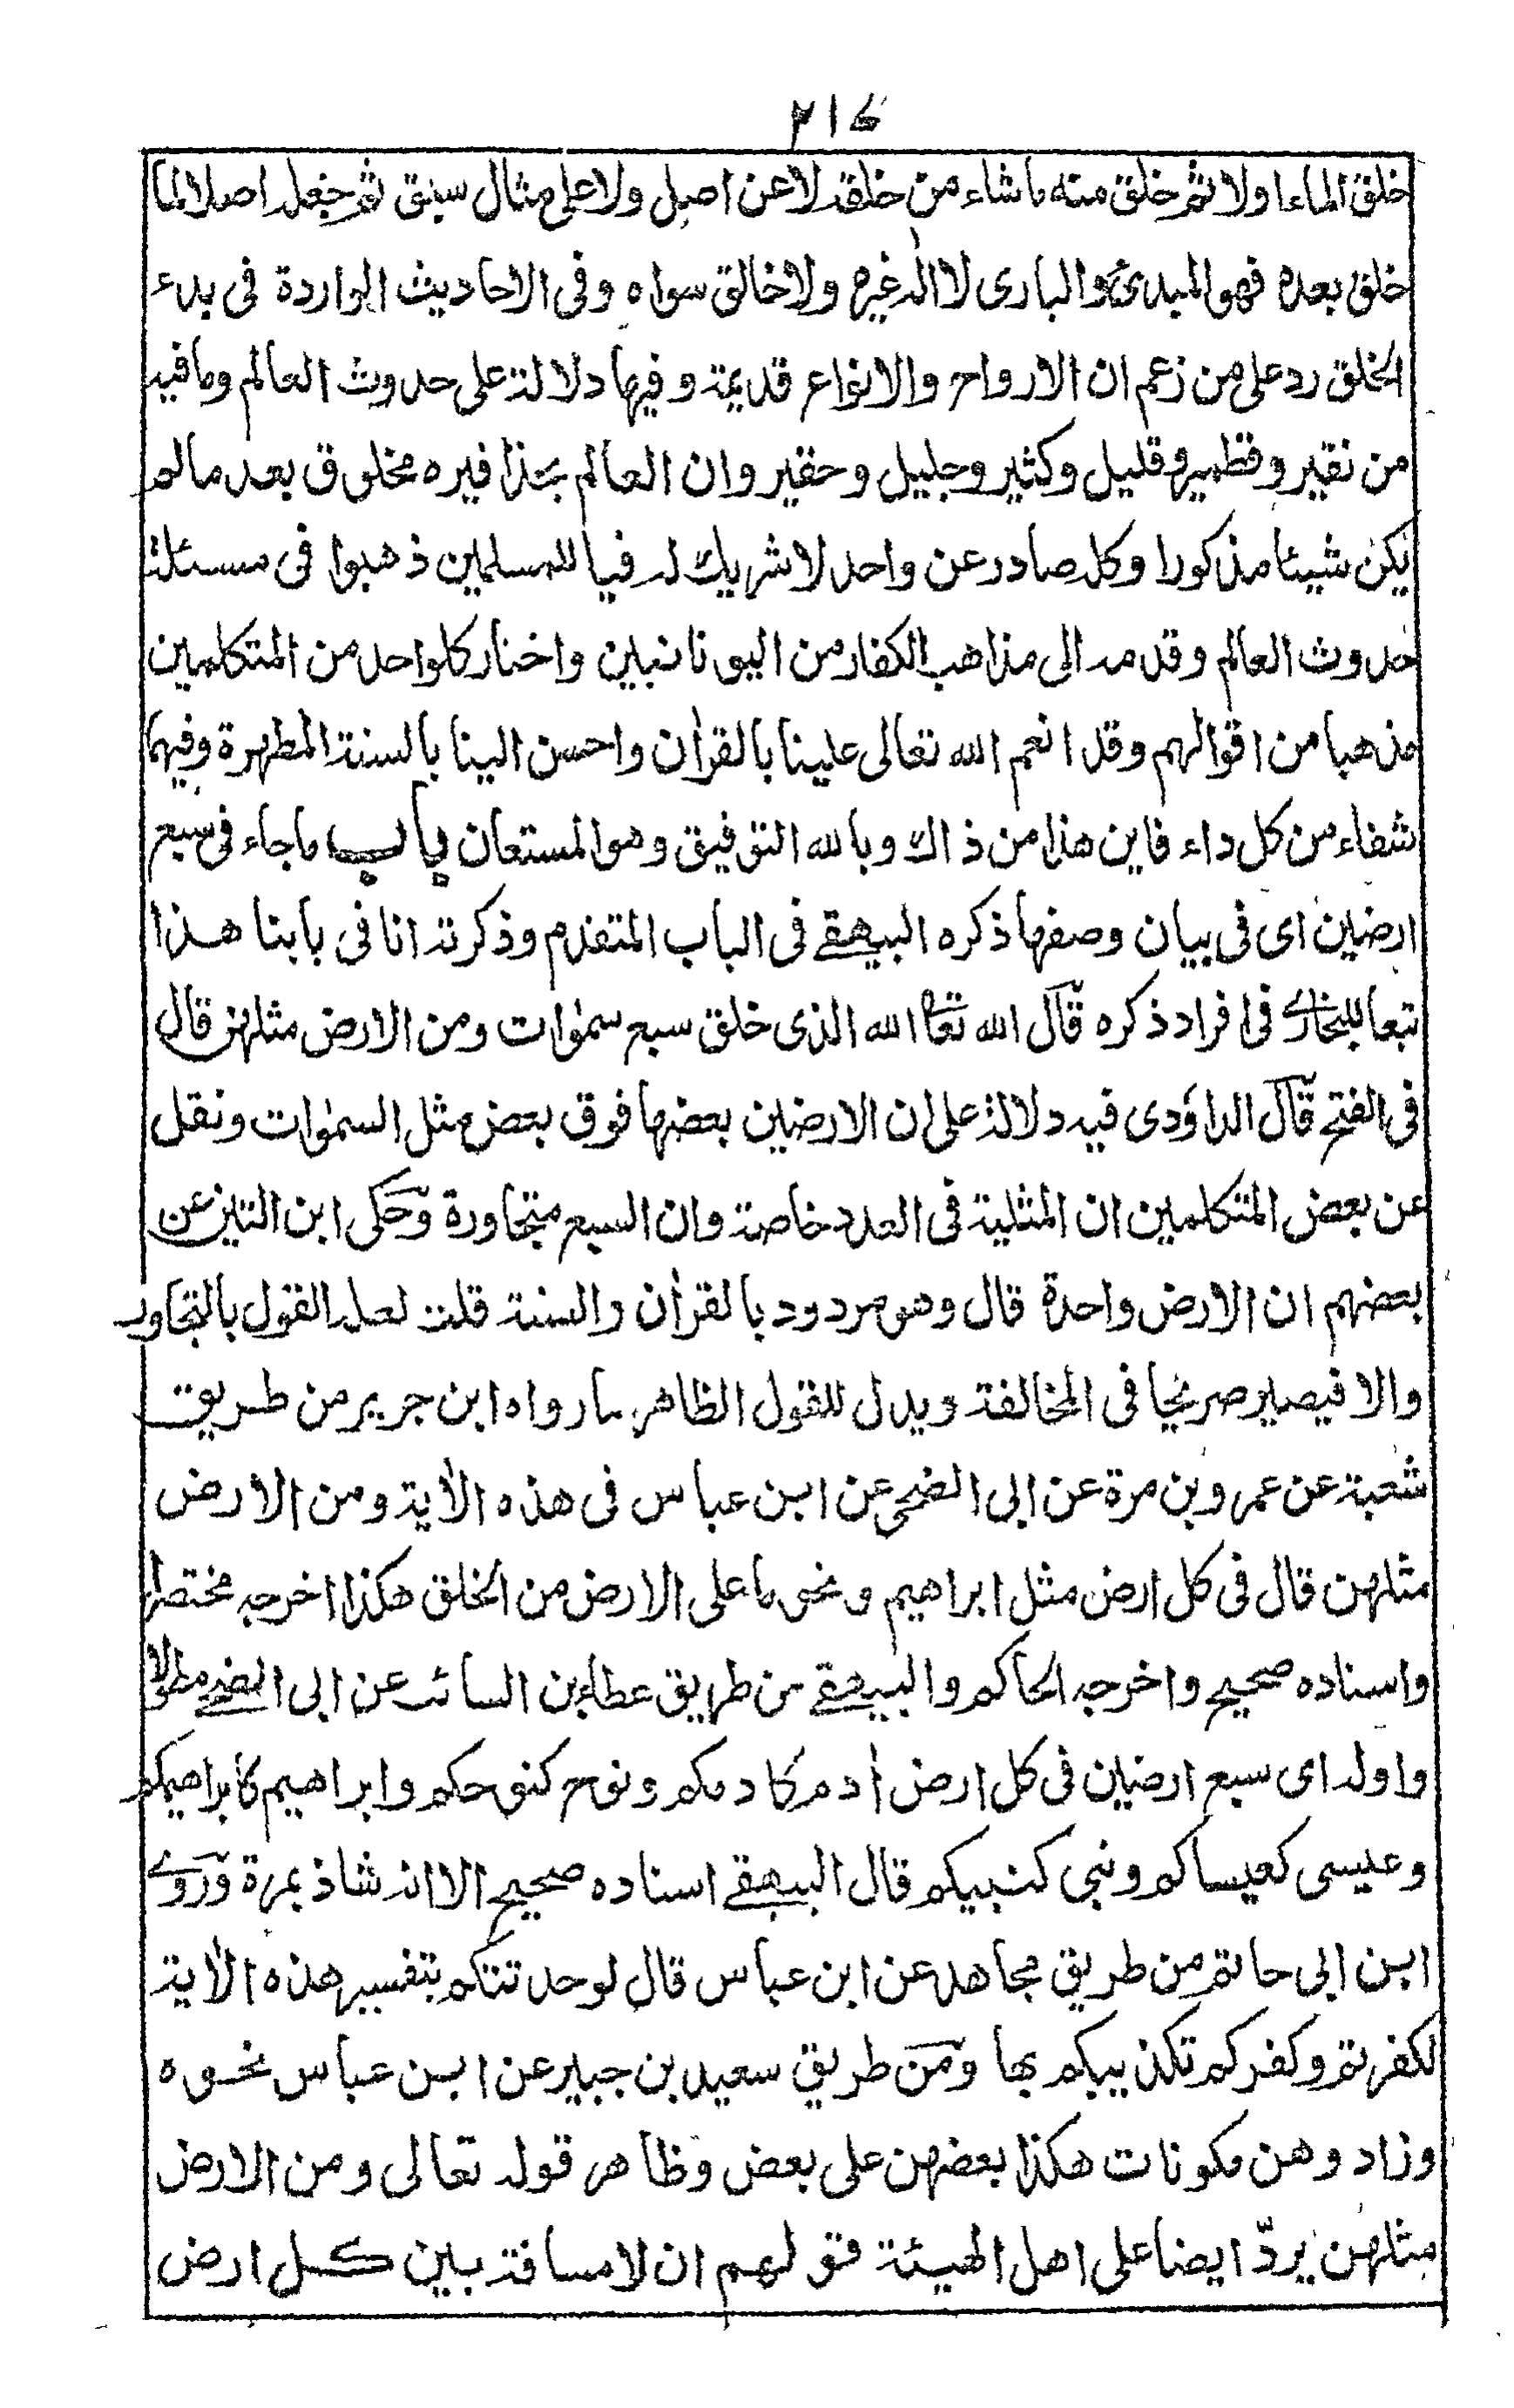 ٢١٤
خلق الماء اولا ثم خلق منه ماشاء من خلقه لا عن اصل ولا على مثال سبق ثم جعله اصلا لما
خلق بعده فهو المبدئ والبارى لا اله غيره ولا خالق سواه وفى الاحاديث الواردة فى بدء
الخلق رد على من زعم ان الارواح والانواع قديمة وفيها دلالة على حدوث العالم وما فيه
من نقير وقطمير وقليل وكثير وجليل وحقير وان العالم بحذافيره مخلوق بعد مالم
يكن شيئا مذكورا وكل صادر عن واحد لا شريك له فيا للمسلمين ذهبوا فى مسئلة
حدوث العالم وقدمه الى مذاهب الكفار من اليونانيين واختار كلواحد من المتكلمين
مذهبا من اقوالهم وقد انعم الله تعالى علينا بالقرآن واحسن الينا بالسنة المطهرة وفيهما
شفاء من كل داء فاين هذا من ذاك وبالله التوفيق وهو المستعان باب ماجاء فى سبع
ارضين اى فى بيان وصفها ذكره البيهقى فى الباب المتقدم وذكرته انا فى بابنا هذا
تبعا للبخارى فى افراد ذكره قال الله تعا الله الذى خلق سبع سمٰوات ومن الارض مثلهن قال
فى الفتح قال الداؤدى فيه دلالة على ان الارضين بعضها فوق بعض مثل السمٰوات ونقل
عن بعض المتكلمين ان المثلية فى العدد خاصة وان السبع متجاورة وحكى ابن التين عن
بعضهم ان الارض واحدة قال وهو مردود بالقرآن والسنة قلت لعله القول بالتجاور
والا فيصير صريحا فى المخالفة ويدل للقول الظاهر ما رواه ابن جرير من طريق
شعبة عن عمرو بن مرة عن ابى الضحى عن ابن عباس فى هذه الآية ومن الارض
مثلهن قال فى كل ارض مثل ابراهيم ونحو ما على الارض من الخلق هكذا اخرجه مختصرا
واسناده صحيح واخرجه الحاكم والبيهقى من طريق عطاء بن السائب عن ابى الضحى مطولا
واوله اى سبع ارضين فى كل ارض آدم كآدمكم ونوح كنوحكم وابراهيم كابراهيمكم
وعيسى كعيساكم ونبى كنبيكم قال البيهقى اسناده صحيح الا انه شاذ بمرة وروى
ابن ابى حاتم من طريق مجاهد عن ابن عباس قال لو حدثتكم بتفسير هذه الآية
لكفرتم وكفركم تكذيبكم بها ومن طريق سعيد بن جبير عن ابن عباس نحوه
وزاد وهن مكونات هكذا بعضهن على بعض وظاهر قوله تعالى ومن الارض
مثلهن يردّ ايضا على اهل الهيئة قولهم ان لا مسافة بين كل ارض